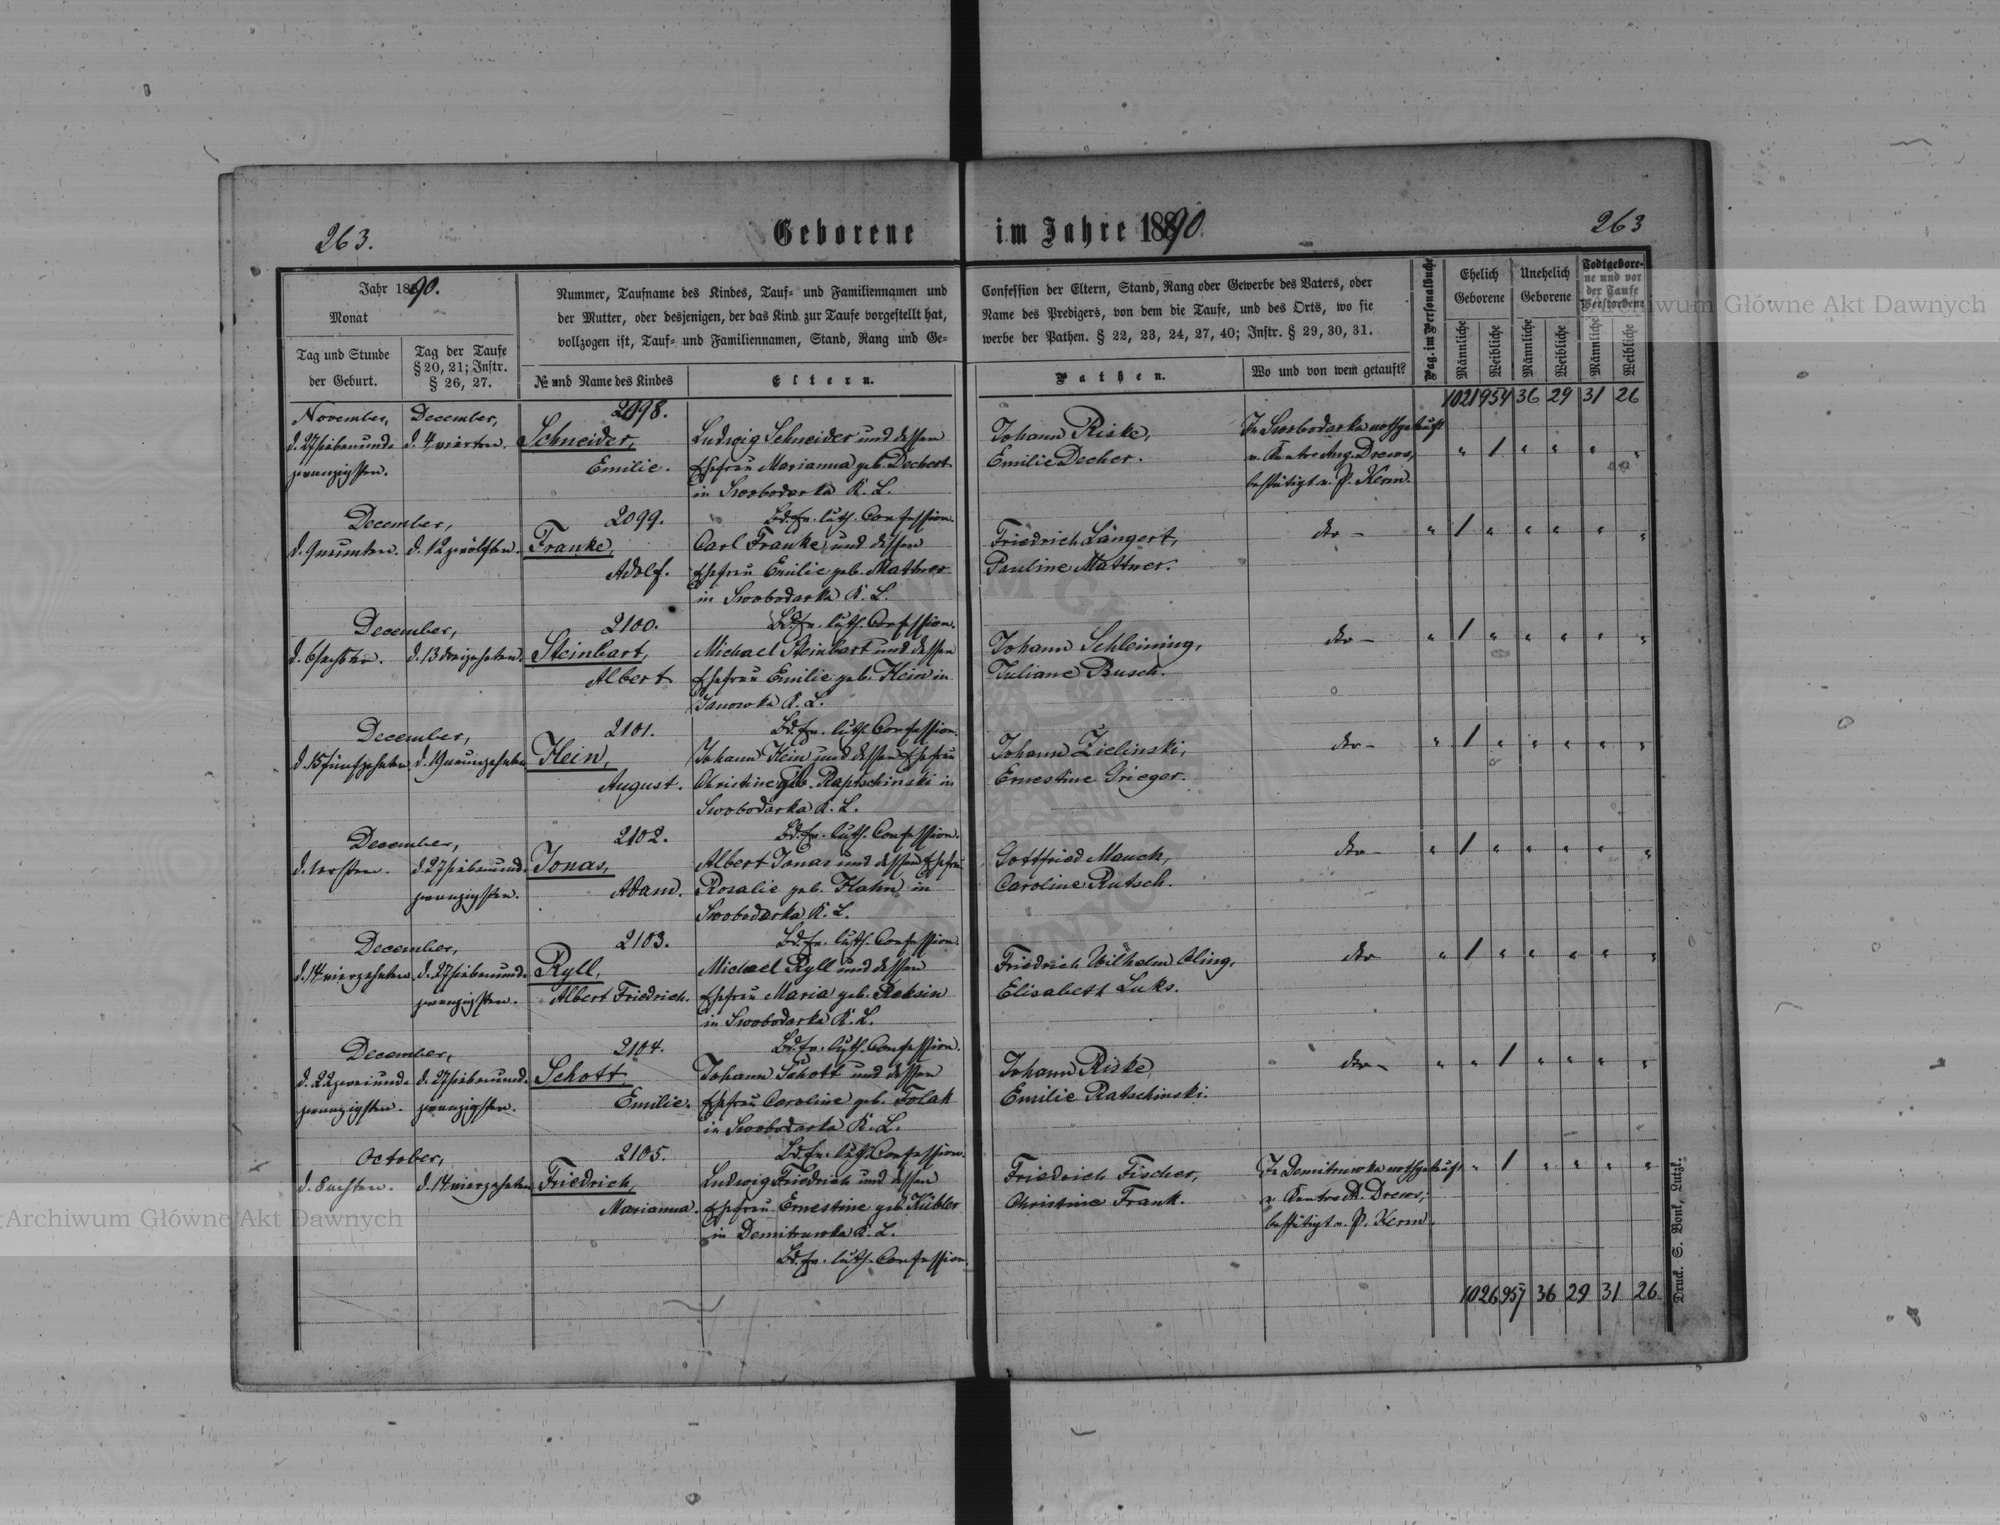 263.
Geborene im Jahre 1890.
263
Jahr 1890.
Monat
Tag und Stunde
der Geburt.
Tag der Taufe
§ 20, 21; Instr.
§ 26, 27.
Nummer, Taufname des Kindes, Tauf- und Familiennamen und
der Mutter, oder desjenigen, der das Kind zur Taufe vorgestellt hat,
vollzogen ist, Tauf- und Familiennamen, Stand, Rang und Ge-
№ und Name des Kindes
Eltern.
Confession der Eltern, Stand, Rang oder Gewerbe des Vaters, oder
Name des Predigers, von dem die Taufe, und des Orts, wo sie
werbe der Pathen. § 22, 23, 24, 27, 40; Instr. § 29, 30, 31.
Pathen.
Wo und von wem getauft?
Pag. im Personalbuche
Ehelich
Geborene
Unehelich
Geborene
Todtgebore-
ne und vor
der Taufe
Verstorbene
Männliche
Weibliche
Männliche
Weibliche
Männliche
Weibliche
1021 954 36 29 31 26
November,
d. 27 siebenund-
zwanzigsten.
December,
d. 4 vierten.
2098.
Schneider,
Emilie.
Ludwig Schneider und dessen
Ehefrau Marianna geb. Deckert
in Swobodarka K. L.
Bd. ev. luth. Confession.
Johann Riske,
Emilie Decher.
In Swobodarka nothgetauft
v. Kantor Aug. Drews,
bestätigt v. P. Kerm.
" " 1 " " " "
December,
d. 9 neunten. d. 12 zwölften.
2099.
Franke,
Adolf.
Carl Franke und dessen
Ehefrau Emilie geb. Mattner
in Swobodarka K. L.
Bd. ev. luth. Confession.
Friedrich Längert,
Pauline Mattner.
dto –
" 1 " " " " "
December,
d. 6 sechsten. d. 13 dreizehnten.
2100.
Steinbart,
Albert
Michael Steinbart und dessen
Ehefrau Emilie geb. Hein in
Janowka K. L.
Bd. ev. luth. Confession.
Johann Schleining,
Juliane Busch.
dto –
" 1 " " " " "
December,
d. 15 fünfzehnten d. 19 neunzehnten
2101.
Hein,
August.
Johann Hein und dessen Ehefrau
Christine geb. Raptschinski in
Swobodarka K. L.
Bd. ev. luth. Confession.
Johann Zielinski,
Ernestine Grieger.
dto –
" 1 " " " " "
December,
d. 1 ersten. d. 27 siebenund-
zwanzigsten.
2102.
Jonas,
Adam.
Albert Jonas und dessen Ehefrau
Rosalie geb. Hahn in
Swobodarka K. L.
Bd. ev. luth. Confession.
Gottfried Mauch,
Caroline Rutsch.
dto –
" 1 " " " " "
December,
d. 14 vierzehnten d. 27 siebenund-
zwanzigsten.
2103.
Ryll,
Albert Friedrich.
Michael Ryll und dessen
Ehefrau Maria geb. Reksin
in Swobodarka K. L.
Bd. ev. luth. Confession.
Friedrich Wilhelm Oling,
Elisabeth Luks.
dto
" 1 " " " " "
December,
d. 22 zweiund- d. 27 siebenund-
zwanzigsten. zwanzigsten.
2104.
Schott
Emilie.
Johann Schott und dessen
Ehefrau Caroline geb. Folak
in Swobodarka K. L.
Bd. ev. luth. Confession.
Johann Riske,
Emilie Ratschinski.
dto –
" " 1 " " " "
October,
d. 8 achten. d. 14 vierzehnten
2105.
Friedrich,
Marianna.
Ludwig Friedrich und dessen
Ehefrau Ernestine geb. Kübler
in Demitrowka K. L.
Bd. ev. luth. Confession.
Friedrich Fischer,
Christine Frank.
In Demitrowka nothgetauft
v. Kantor A. Drews,
bestätigt v. P. Kerm.
" 1 " " " "
1026 957 36 29 31 26
Druck. S. Bonk, Lutzk.
Archiwum Główne Akt Dawnych
Archiwum Główne Akt Dawnych